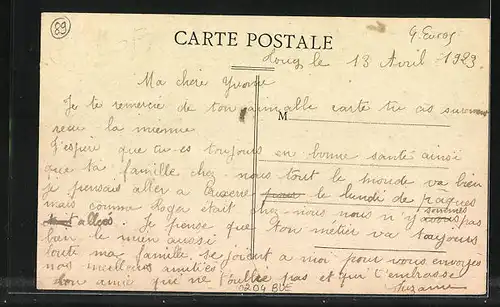 89
G. Euros
CARTE POSTALE
Loucy le 13 Avril 1923
Ma chère Yvonne
Je te remercie de ton aimable carte tu as surement
reçu la mienne
M
J'espère que tu es toujours en bonne santé ainsi
que ta famille chez nous tout le monde va bien
je pensais aller a Auxerre le lundi de paques
mais comme Roger était chez nous nous n'y sommes pas
allées. Je pense que ton metier va toujours
bien le mien aussi
toute ma famille se joient a moi pour vous envoyes
nos meilleures amitiés
ton amie qui ne t'oublie pas et qui t'embrasse
Suzanne
0204 BUE